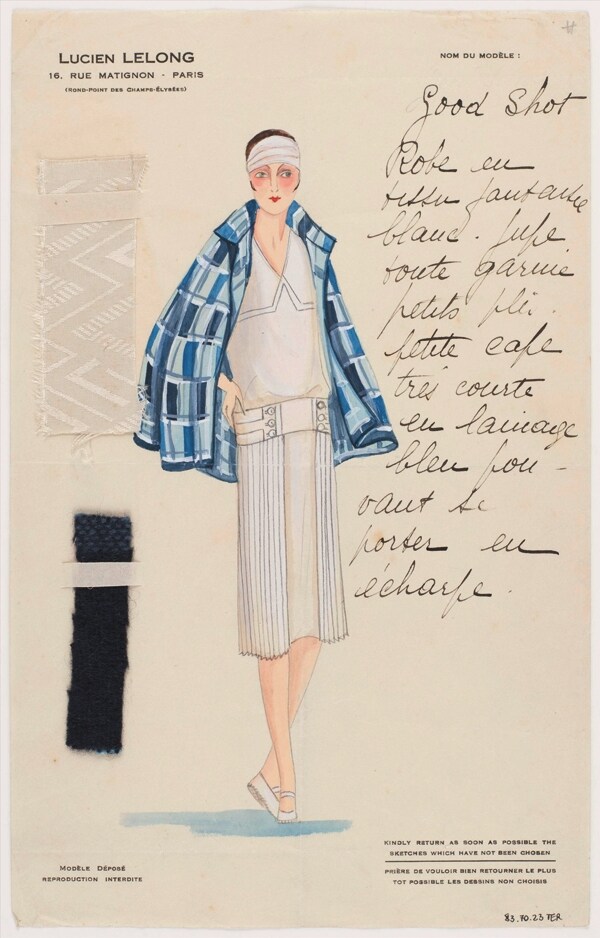 LUCIEN LELONG
16. RUE MATIGNON - PARIS
(ROND-POINT DES CHAMPS-ÉLYSÉES)
NOM DU MODÈLE :
Good Shot
Robe en
tissu fantaisie
blanc. Jupe
toute garnie
petits pli.
petite cape
très courte
en lainage
bleu pou-
vant se
porter en
écharpe.
KINDLY RETURN AS SOON AS POSSIBLE THE
SKETCHES WHICH HAVE NOT BEEN CHOSEN
PRIÈRE DE VOULOIR BIEN RETOURNER LE PLUS
TOT POSSIBLE LES DESSINS NON CHOISIS
MODÈLE DÉPOSÉ
REPRODUCTION INTERDITE
83.70.23 TER